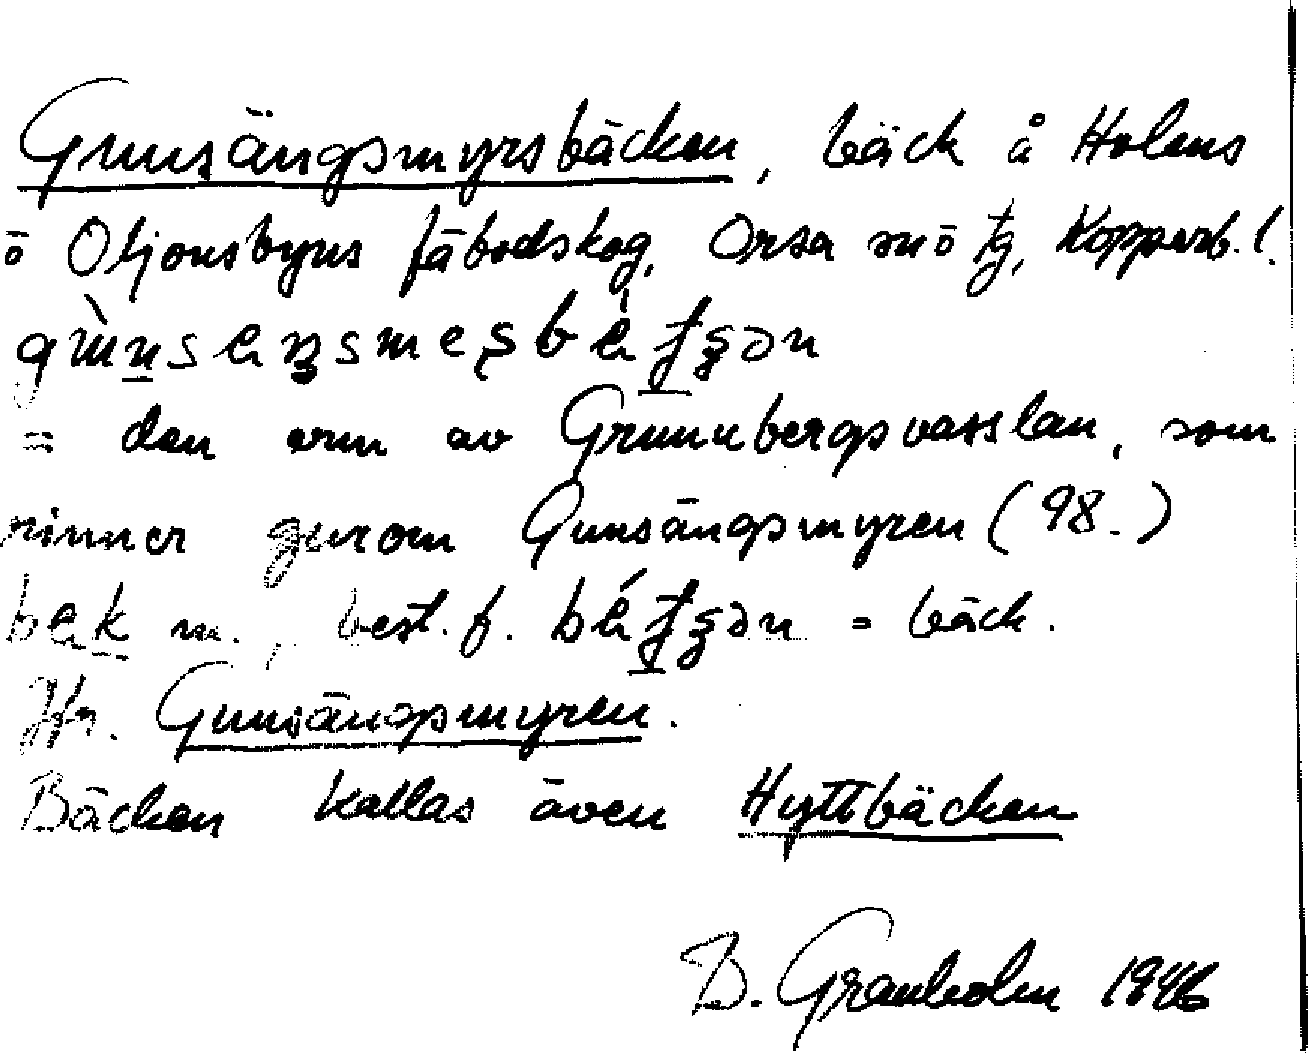 Gunsängsmyrsbäcken, bäck å Holens
o Oljonsbyns fäbodskog, Orsa sn o tg, Kopparb. l.
= den arm av Grunnbergsvasslan, som
rinner genom Gunsängsmyren (98.)
bek m., best. f. = bäck.
Jfr. Gunsängsmyren.
Bäcken kallas även Hyttbäcken
B. Granholm 1946